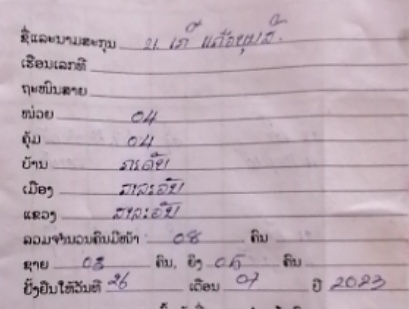 ຊື່ແລະນາມສະກຸນ
ເຮືອນເລກທີ
ຖະໜົນສາຍ
ໜ່ວຍ 04
ຄຸ້ມ 04
ບ້ານ
ເມືອງ ສາລະວັນ
ແຂວງ ສາລະວັນ
ລວມຈຳນວນຄົນມີໜ້າ 08 ຄົນ
ຊາຍ 03 ຄົນ, ຍິງ 05 ຄົນ
ຢັ້ງຢືນໃຫ້ວັນທີ 26 ເດືອນ 07 ປີ 2023